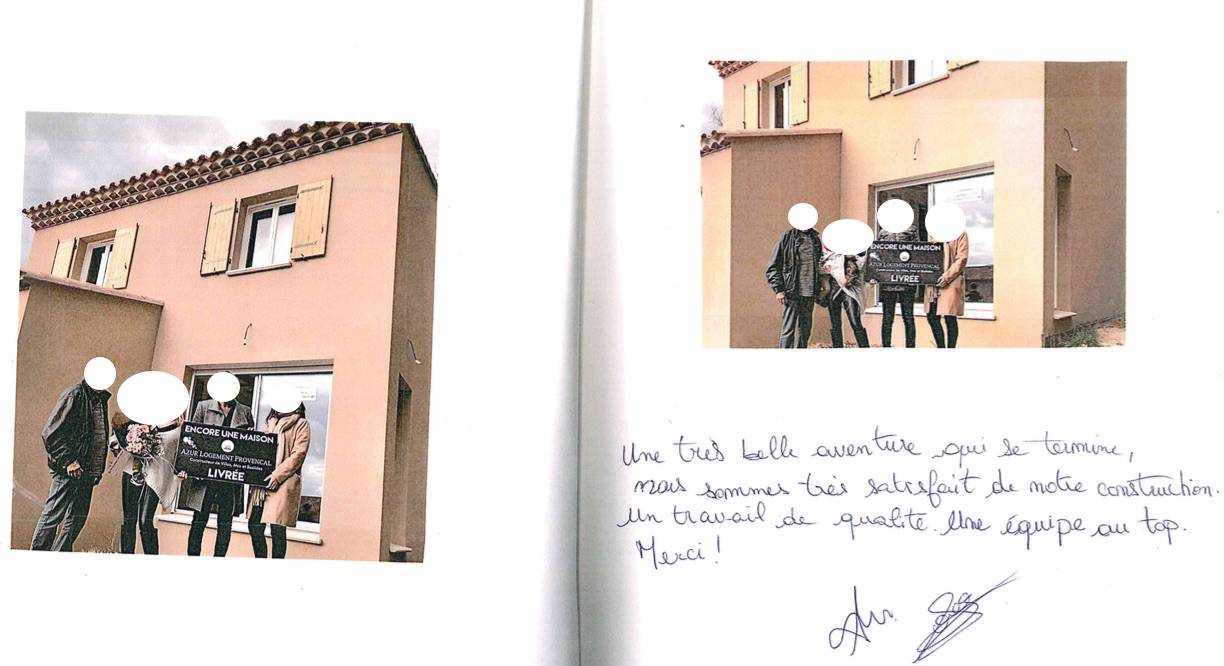 ENCORE UNE MAISON
AZUR LOGEMENT PROVENÇAL
Constructeur de Villas, Mas et Bastides
LIVRÉE
ENCORE UNE MAISON
AZUR LOGEMENT PROVENÇAL
Constructeur de Villas, Mas et Bastides
LIVRÉE
Une très belle aventure qui se termine,
nous sommes très satisfait de notre construction.
Un travail de qualité. Une équipe au top.
Merci !